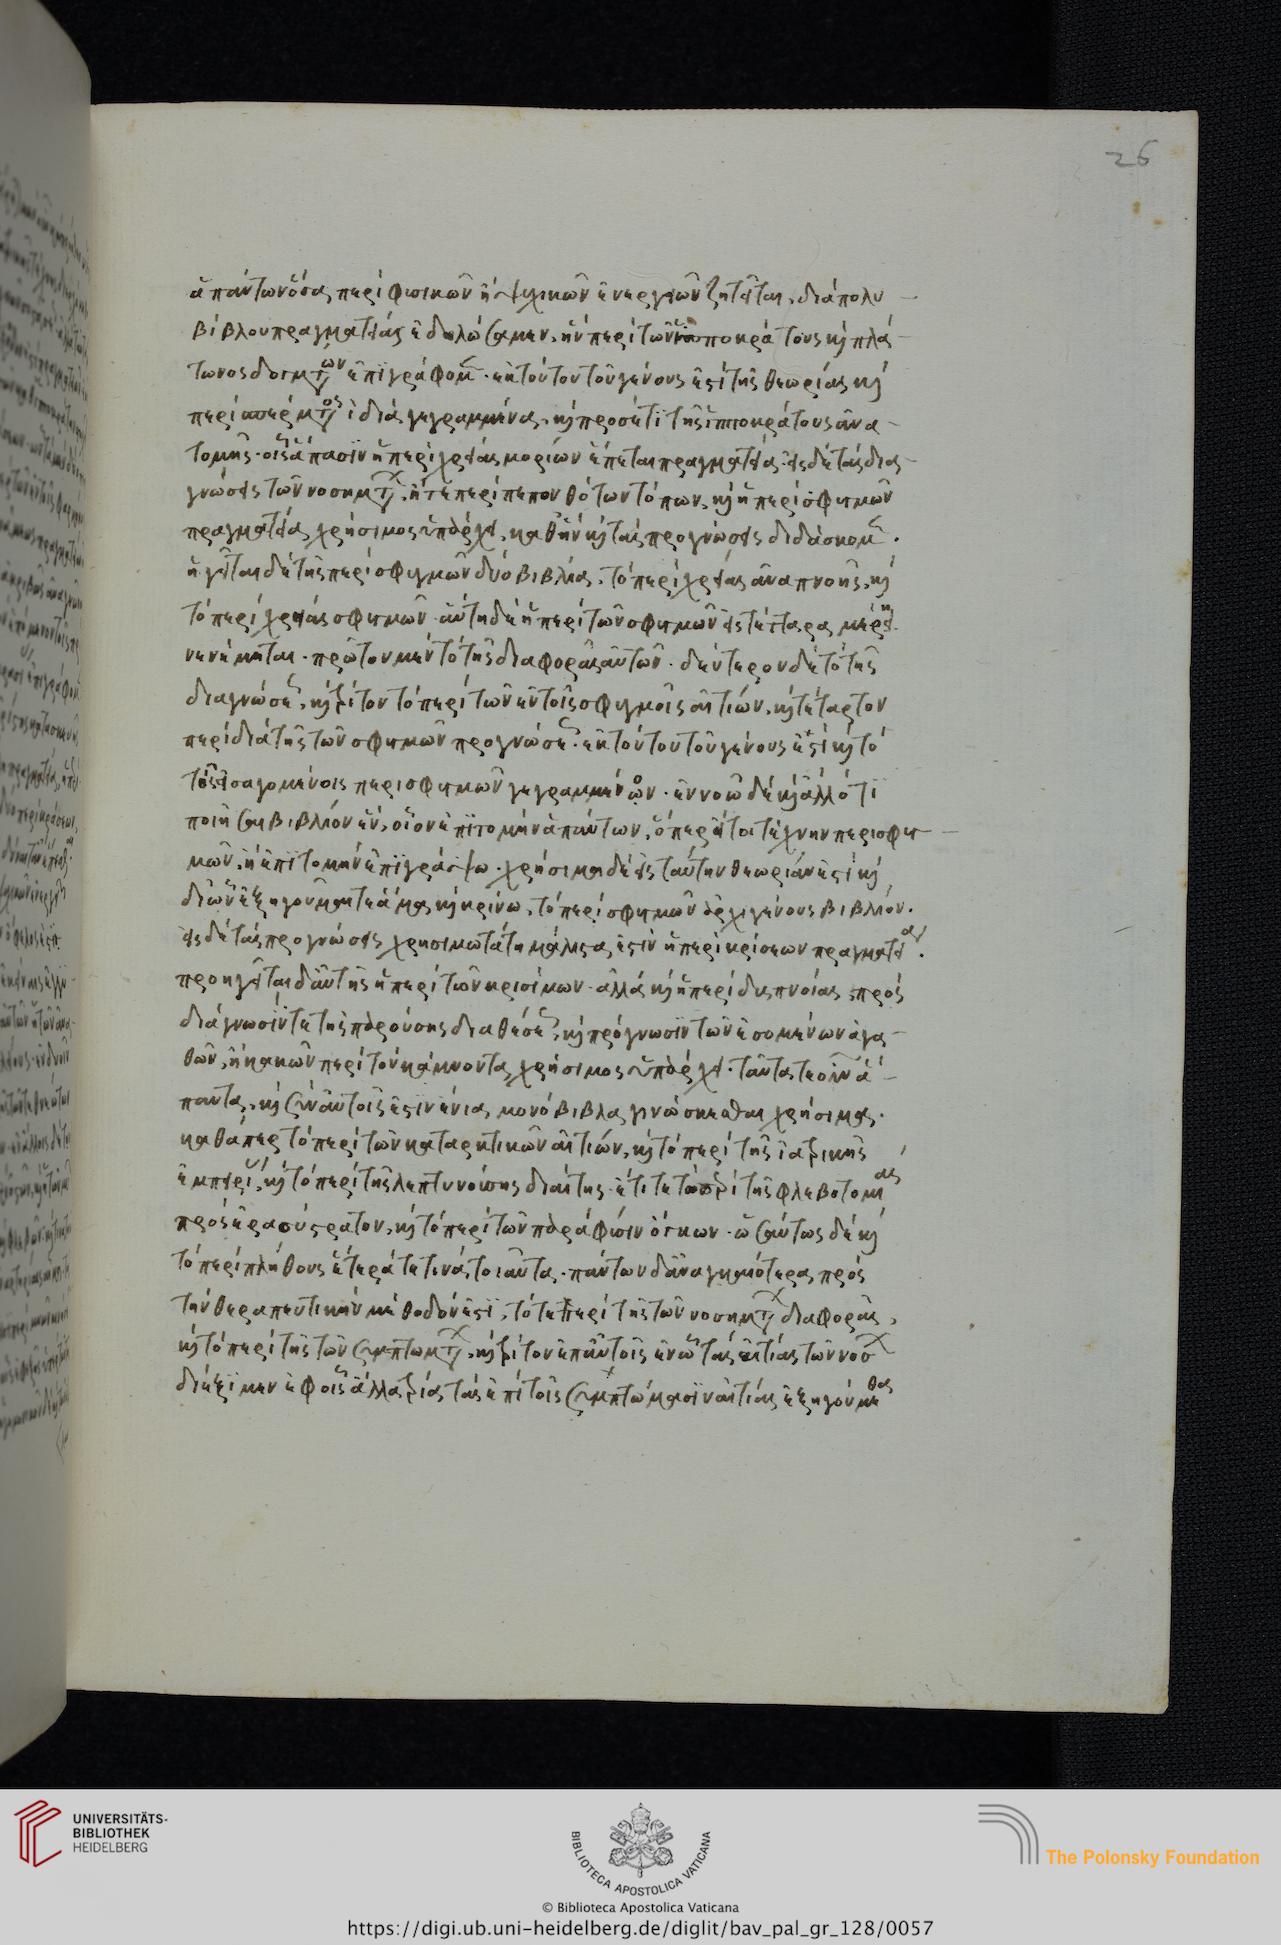 26
ἁπάντων ὅσα περὶ φυσικῶν ἢ ψυχικῶν ἐνεργειῶν ζητεῖται, διὰ πολυ-
βίβλου πραγματείας ἐδηλώσαμεν, ἣν περὶ τῶν ἱπποκράτους καὶ πλά-
τωνος δογμάτων ἐπιγράφομεν. ἐκ τούτου τοῦ γένους ἐστὶ τῆς θεωρίας καὶ
περὶ σπέρματος ἰδίᾳ γεγραμμένα, καὶ προσέτι τῆς ἱπποκράτους ἀνα-
τομῆς. οἷς ἅπασιν ἡ περὶ χρείας μορίων ἕπεται πραγματεία. εἰς δὲ τὰς δια-
γνώσεις τῶν νοσημάτων, ἥ τε περὶ πεπονθότων τόπων, καὶ ἡ περὶ σφυγμῶν
πραγματεία χρήσιμος ὑπάρχει, καθ' ἣν καὶ τὰς προγνώσεις διδάσκομεν.
ἡγεῖται δὲ τῆς περὶ σφυγμῶν δύο βιβλία, τὸ περὶ χρείας ἀναπνοῆς, καὶ
τὸ περὶ χρείας σφυγμῶν. αὕτη δὲ ἡ περὶ τῶν σφυγμῶν εἰς τέτταρα μέρη
νενέμηται. πρῶτον μὲν τὸ τῆς διαφορᾶς αὐτῶν. δεύτερον δὲ τὸ τῆς
διαγνώσεως, καὶ τρίτον τὸ περὶ τῶν ἐν τοῖς σφυγμοῖς αἰτιῶν, καὶ τέταρτον
περὶ διὰ τῆς τῶν σφυγμῶν προγνώσεως. ἐκ τούτου τοῦ γένους ἐστὶ καὶ τὸ
τοῖς εἰσαγομένοις περὶ σφυγμῶν γεγραμμένον. ἐννοῶ δὲ καὶ ἄλλό τι
ποιῆσαι βιβλίον ἕν, οἷον ἐπιτομὴν ἁπάντων, ὅπερ ἤτοι τέχνην περὶ σφυ-
μῶν, ἢ ἐπιτομὴν ἐπιγράψω. χρήσιμα δὲ εἰς ταύτην θεωρίαν ἐστὶ καὶ
δι' ὧν ἐξηγοῦμαί τε ἅμα καὶ κρίνω, τὸ περὶ σφυγμῶν ἀρχιγένους βιβλίον.
εἰς δὲ τὰς προγνώσεις χρησιμωτάτη μάλιστα ἐστὶν ἡ περὶ κρίσεων πραγματεία.
προηγεῖται δ' αὐτῆς ἡ περὶ τῶν κρισίμων. ἀλλὰ καὶ ἡ περὶ δυσπνοίας, πρὸς
διάγνωσίν τε τῆς παρούσης διαθέσεως, καὶ πρόγνωσιν τῶν ἐσομένων ἀγα-
θῶν, ἢ κακῶν περὶ τὸν κάμνοντα, χρήσιμος ὑπάρχει. ταῦτα τε οὖν ἅ-
παντα, καὶ σὺν αὐτοῖς ἐστιν ἔνια μονόβιβλα γινώσκεσθαι χρήσιμα.
καθάπερ τὸ περὶ τῶν καταρκτικῶν αἰτιῶν, καὶ τὸ περὶ τῆς ἰατρικῆς
ἐμπειρίας, καὶ τὸ περὶ τῆς λεπτυνούσης διαίτης. ἔτι τε τὸ περὶ τῆς φλεβοτομίας
πρὸς ἐρασίστρατον, καὶ τὸ περὶ τῶν παρὰ φύσιν ὄγκων. ὡσαύτως δὲ καὶ
τὸ περὶ πλήθους ἕτερά τε τινὰ τοιαῦτα. πάντων δ' ἀναγκαιότερα πρὸς
τὴν θεραπευτικὴν μέθοδόν ἐστι, τό τε περὶ τῆς τῶν νοσημάτων διαφορᾶς,
καὶ τὸ περὶ τῆς τῶν συμπτωμάτων, καὶ τρίτον ἐπ' αὐτοῖς ἐν ᾧ τὰς αἰτίας τῶν νοσημάτων
διέξιμεν ἐφ' οἷς ἄλλα τρία τὰς ἐπὶ τοῖς συμπτώμασιν αἰτίας ἐξηγούμεθα
UNIVERSITÄTS-
BIBLIOTHEK
HEIDELBERG
BIBLIOTECA APOSTOLICA VATICANA
The Polonsky Foundation
© Biblioteca Apostolica Vaticana
https://digi.ub.uni-heidelberg.de/diglit/bav_pal_gr_128/0057